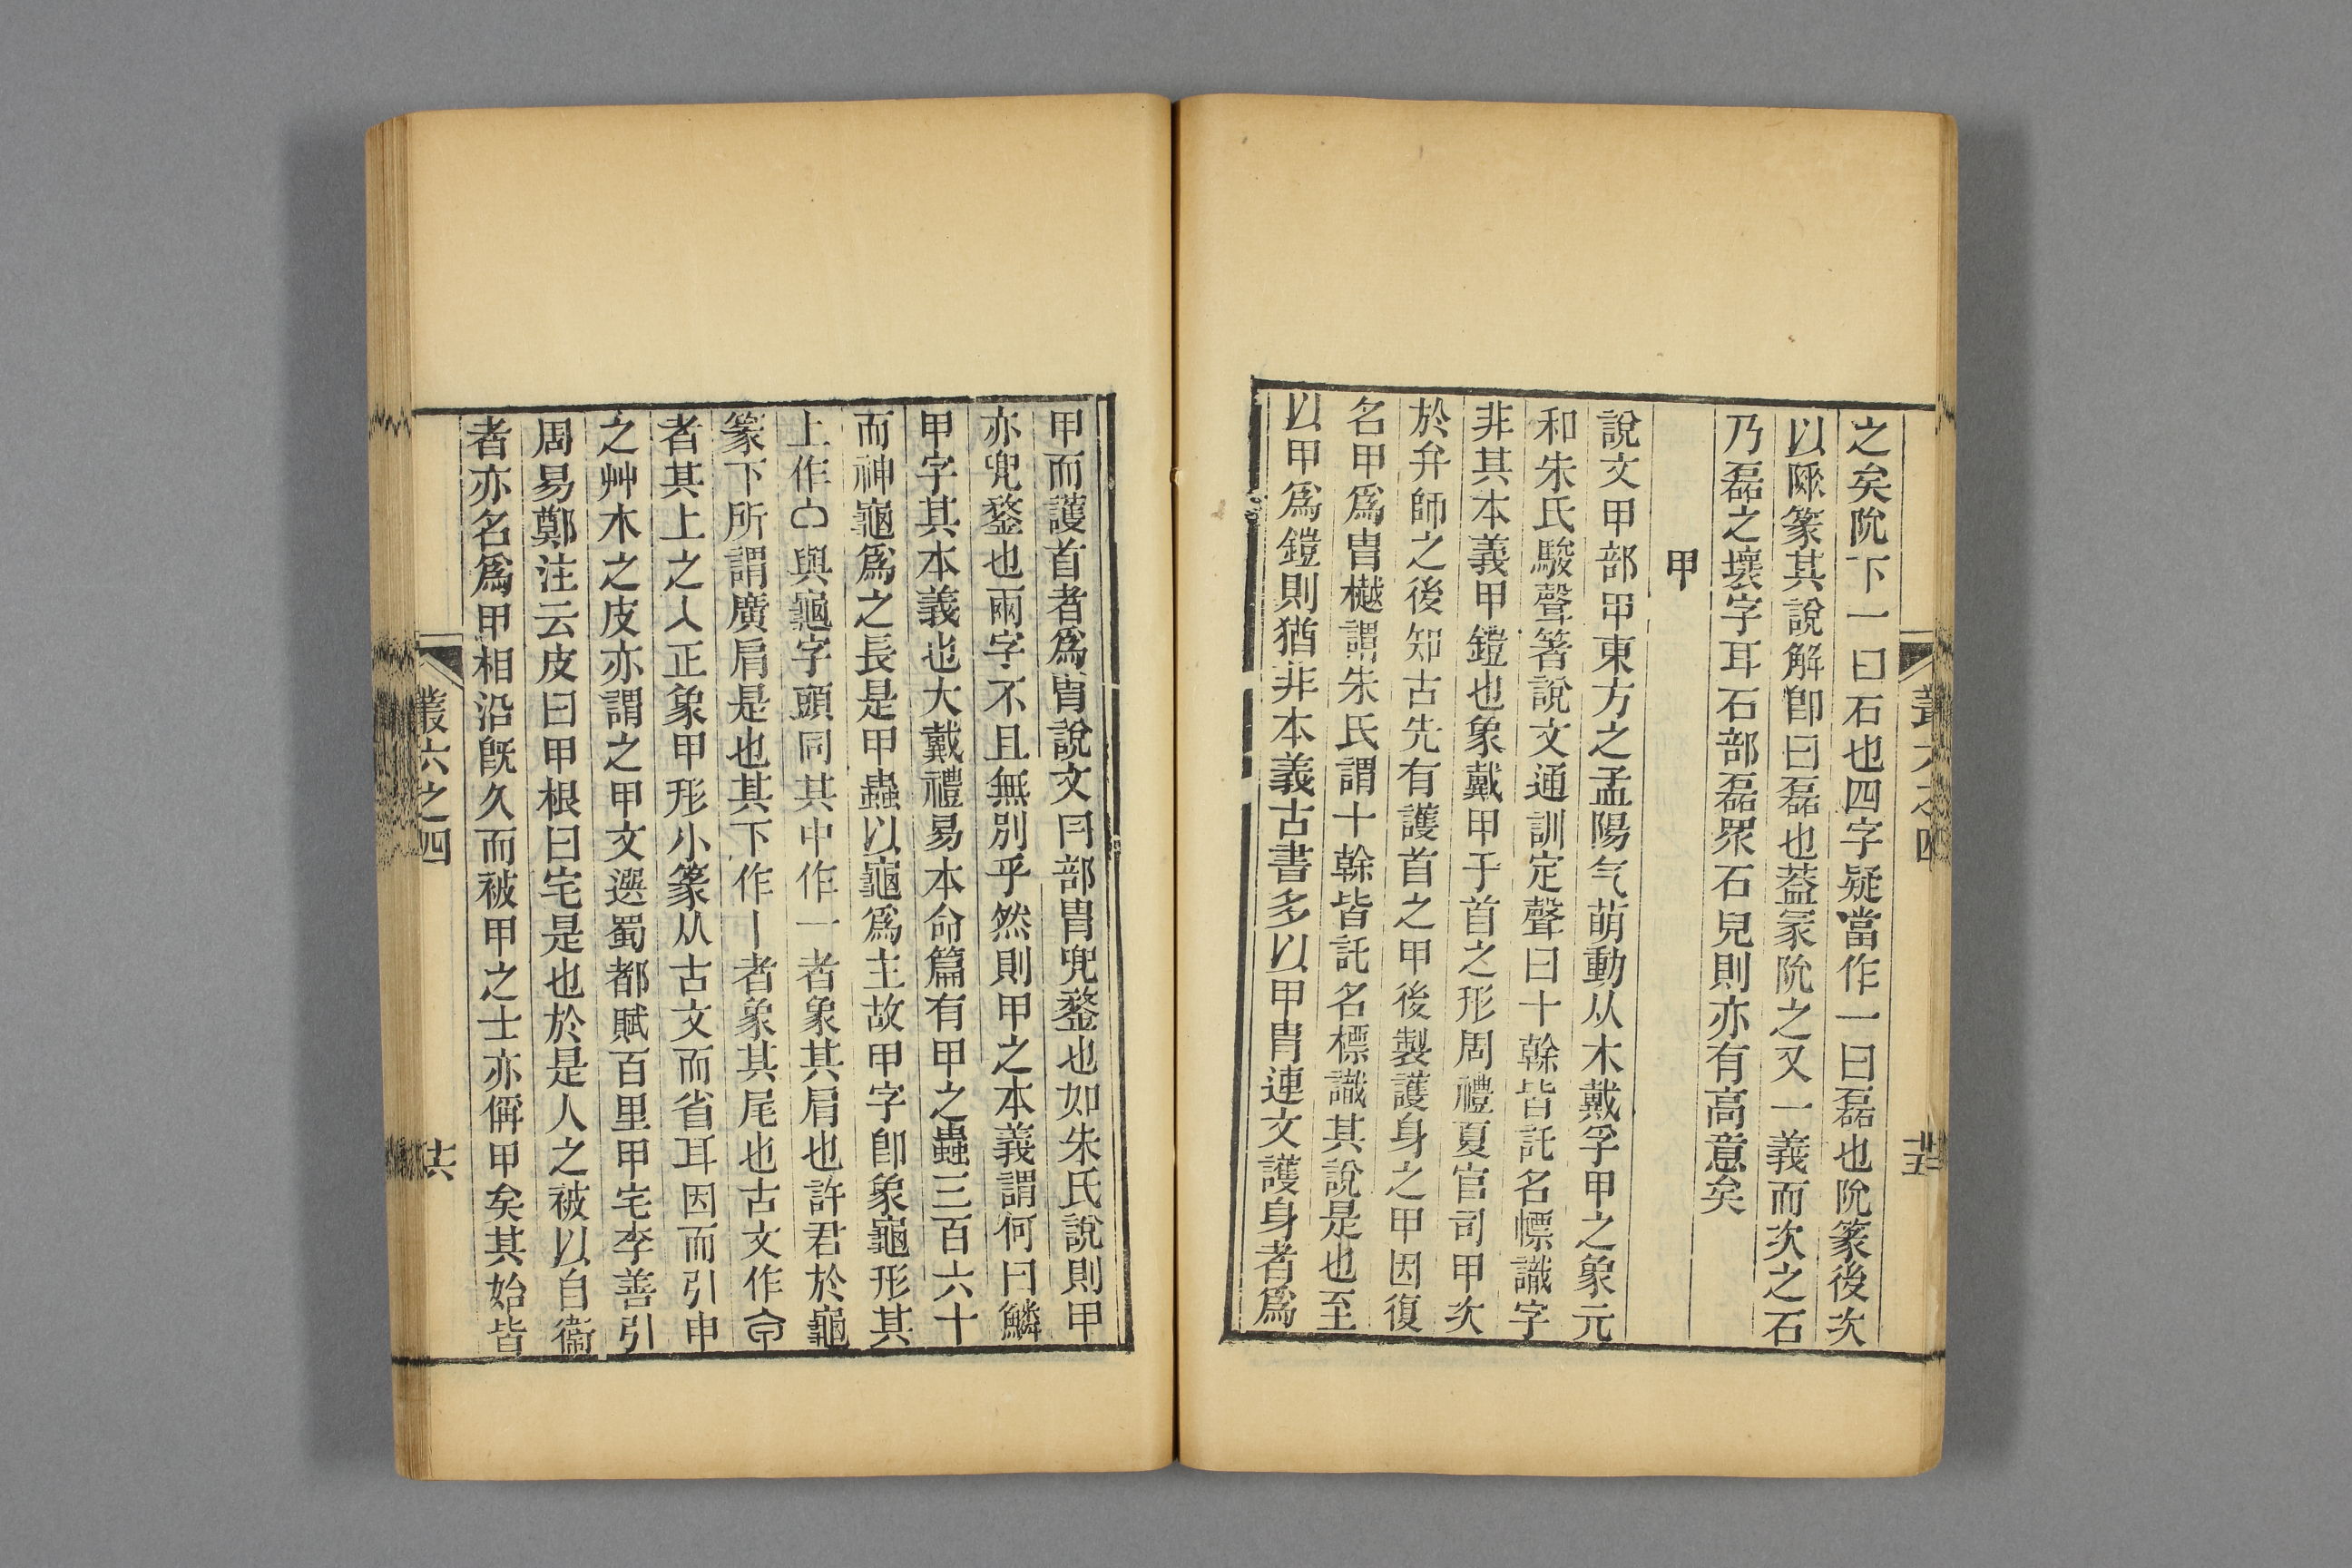 之矣阭下一曰石也四字疑當作一曰磊也阭篆後次
以隬篆其說解卽曰磊也葢冡阭之又一義而次之石
乃磊之壞字耳石部磊眾石皃則亦有高意矣
甲
說文甲部甲東方之孟陽气萌動从木戴孚甲之象元
和朱氏駿聲箸說文通訓定聲曰十榦皆託名幖識字
非其本義甲鎧也象戴甲于首之形周禮夏官司甲次
於弁師之後知古先有護首之甲後製護身之甲因復
名甲爲胄樾謂朱氏謂十榦皆託名標識其說是也至
以甲爲鎧則猶非本義古書多以甲胄連文護身者爲
甲而護首者爲胄說文冃部胄兜鍪也如朱氏說則甲
亦兜鍪也兩字不且無別乎然則甲之本義謂何曰鱗
甲字其本義也大戴禮易本命篇有甲之蟲三百六十
而神龜爲之長是甲蟲以龜爲主故甲字卽象龜形其
上作與龜字頭同其中作一者象其肩也許君於龜
篆下所謂廣肩是也其下作丨者象其尾也古文作
者其上之人正象甲形小篆从古文而省耳因而引申
之艸木之皮亦謂之甲文選蜀都賦百里甲宅李善引
周易鄭注云皮曰甲根曰宅是也於是人之被以自衞
者亦名爲甲相沿旣久而被甲之士亦偁甲矣其始皆
叢六之四
十六